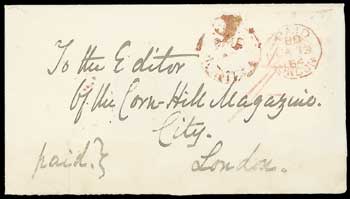 To the Editor
Of the Corn-Hill Magazine.
City.
paid.
London.
PAID